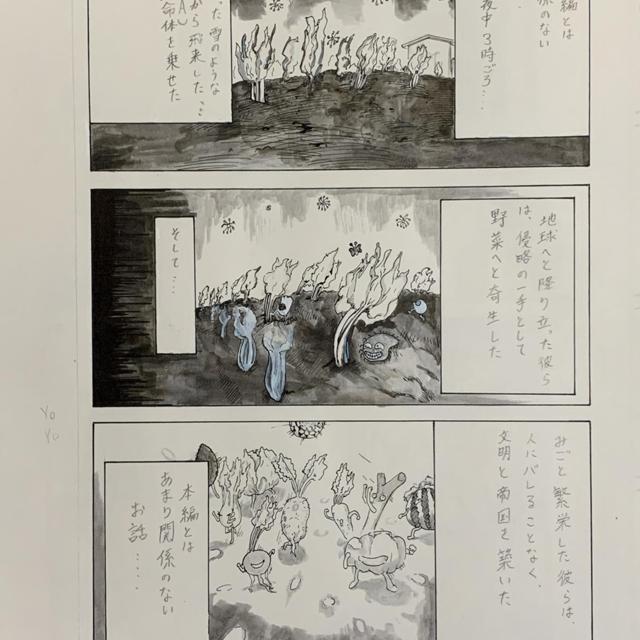 編とは
係のない
夜中3時ごろ…
った雪のような
から飛来した…
命体を乗せた
地球へと降り立った彼ら
は、侵略の一手として
野菜へと寄生した
そして…
みごと繁栄した彼らは、
人にバレることなく、
文明と帝国を築いた
本編とは
あまり関係のない
お話……
Yo
Yo